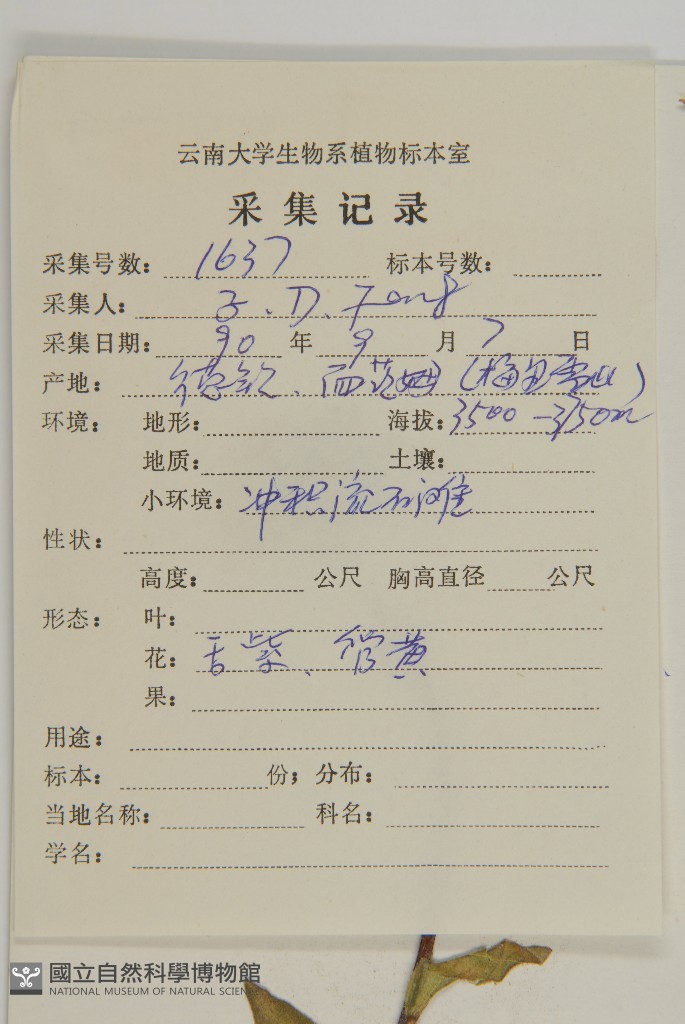 云南大学生物系植物标本室
采集记录
采集号数：1637 标本号数：
采集人：Z. D. Fang
采集日期：90年9月7日
产地：德钦、西范姆（梅里雪山）
环境：地形： 海拔：3500-3750m
地质： 土壤：
小环境：冲积流石滩
性状：
高度： 公尺 胸高直径 公尺
形态：叶：
花：舌紫、管黄
果：
用途：
标本： 份；分布：
当地名称： 科名：
学名：
國立自然科學博物館
NATIONAL MUSEUM OF NATURAL SCIENCE